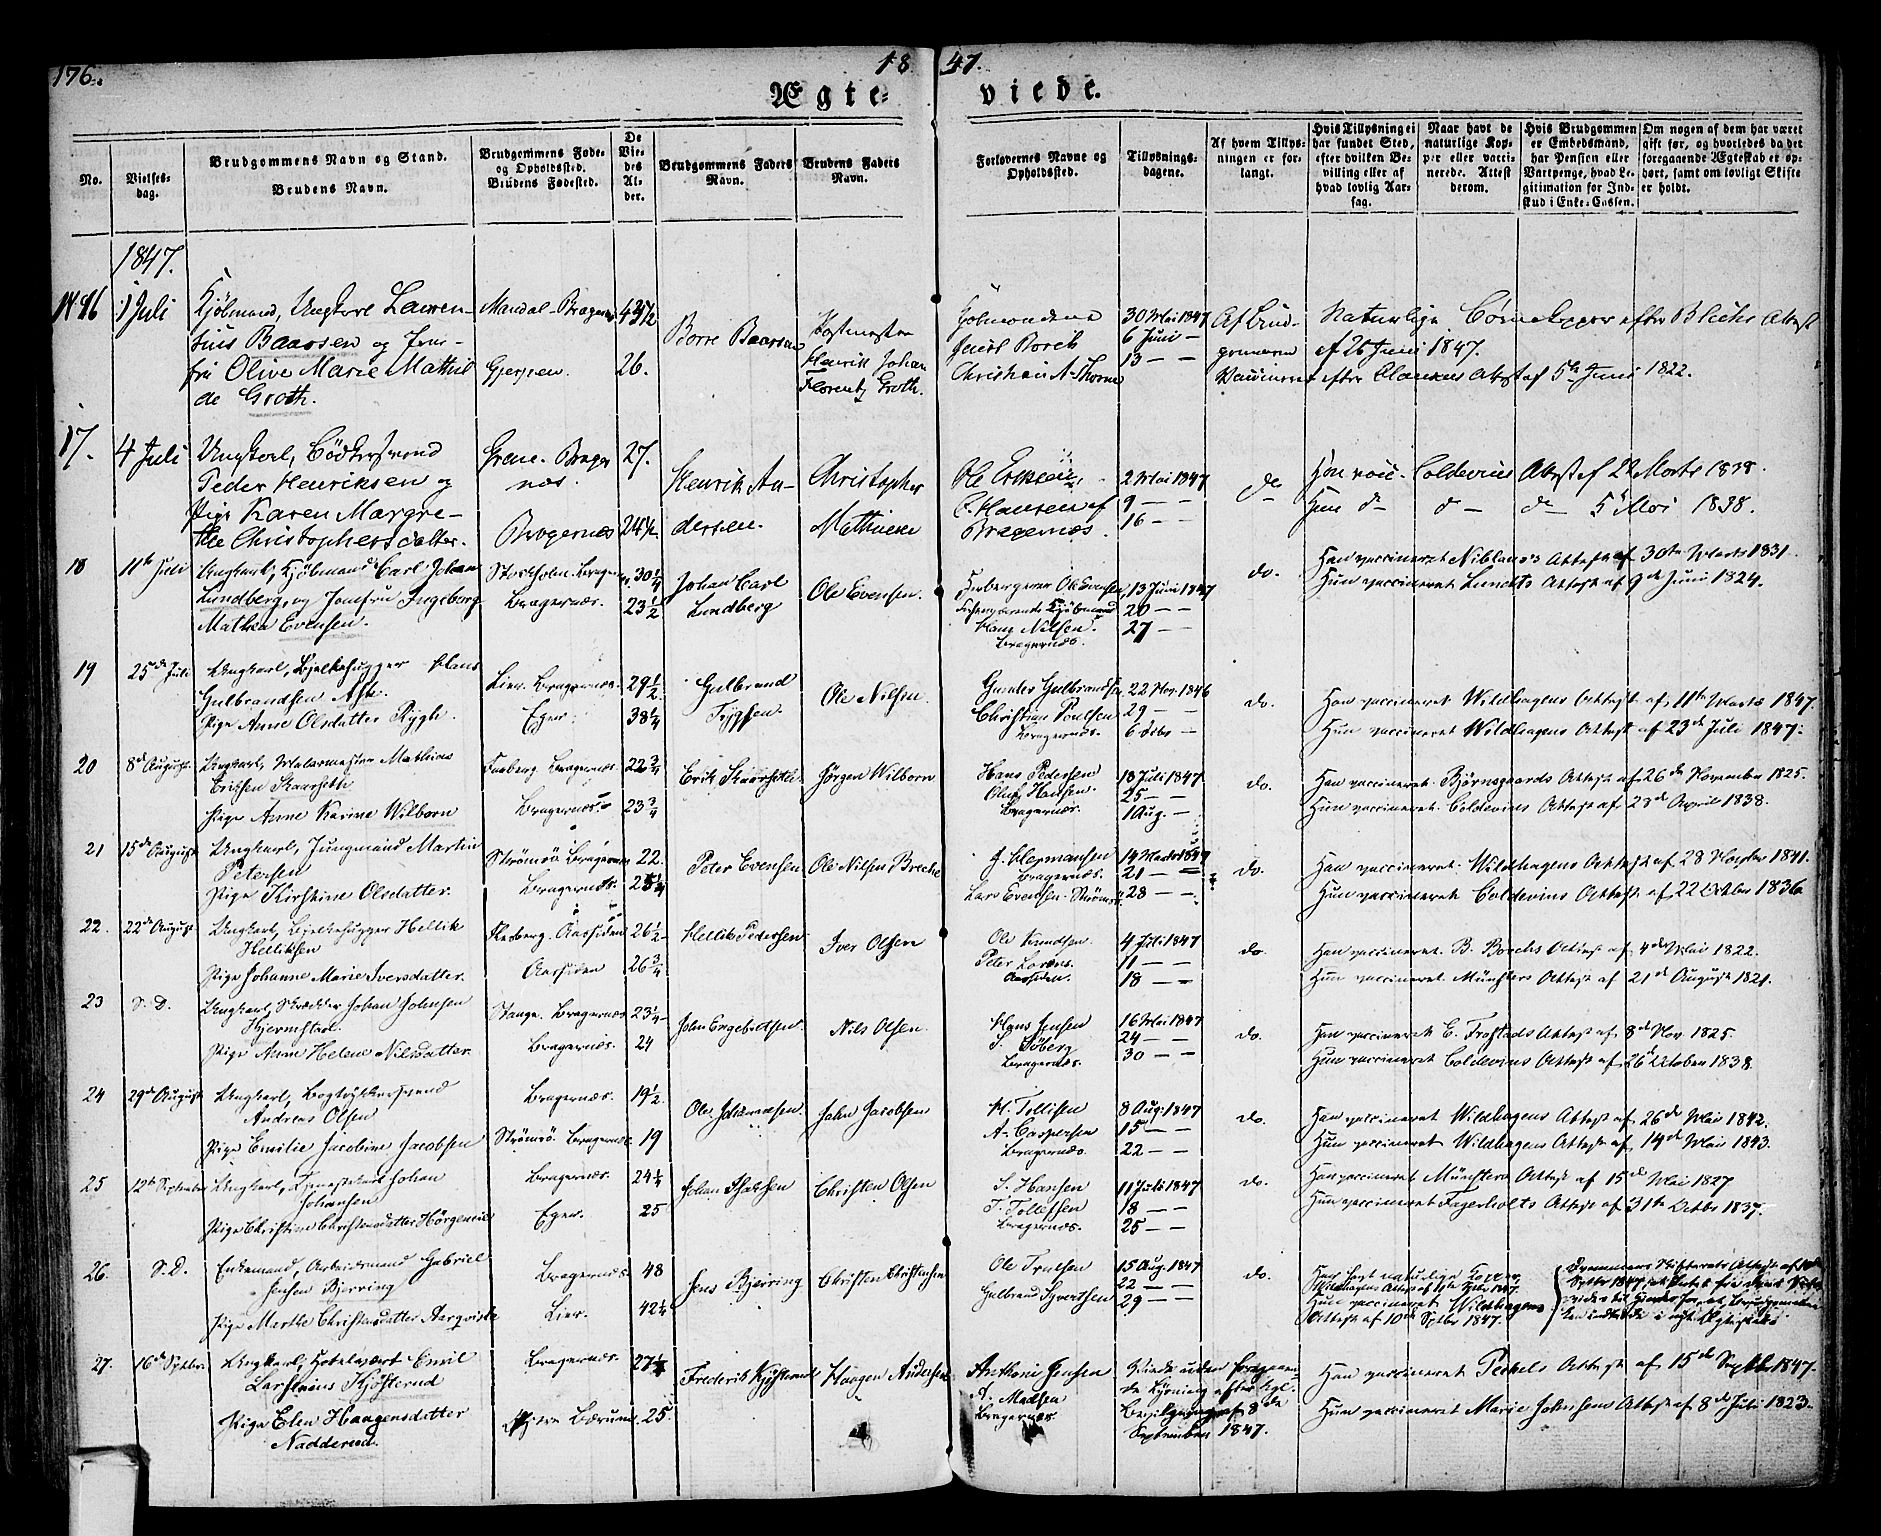 176.
18 47.
Ægte-viede.
No.
Vielses-dag.
Brudgommens Navn og Stand.
Brudens Navn.
Brudgommens Føde- og Opholdssted. Brudens Fødested.
De Viedes Alder.
Brudgommens Faders Navn.
Brudens Faders Navn.
Forlovernes Navne og Opholdssted.
Tillysnings-dagene.
Af hvem Tillysningen er forlangt.
Hvis Tillysning ei har fundet Sted, efter hvilken Bevilling eller af hvad lovlig Aarsag.
Naar havt de naturlige Kopper eller vaccinerede. Attest derom.
Hvis Brudgommen er Embedsmand, har Pension eller Vartpenge, hvad Legitimation for Indskud i Enke-Cassen.
Om nogen af dem har været gift før, og hvorledes da det foregaaende Ægteskab er ophørt, samt om lovligt Skifte er holdt.
1847.
16 1 Juli Kjøbmand, Ungkarl Lauren-
tius Baarsen og Jom-
fru Olive Marie Mathil
de Groth.
Mandal - Bragernæs 43 1/2
26.
Borre Baarsen
Henrik Johan
Florentz Groth.
Christian A. Thorne
30 Mai 1847
6 Juni —
13 — —
Af Brud-
gommen
Naturlige Børnekopper efter Blichs Attest
af 26 Juni 1847.
Attest af 5te Juni 1822.
17. 4 Juli Ungkarl, Bødkersvend
Peder Henriksen og
Pige Karen Margre-
the Christophersdatter.
Brager
næs.
27.
Bragernæs 24 1/2
Henrik An-
dersen.
Christopher
Mathiesen
Ole Eriksen,
C. Hansen af
Bragernæs.
2 Mai 1847
9 — —
16 — —
do
Han vacc. Coldevins Attest af 22 Marts 1838.
Hun d— d— d— 5 Mai 1838.
18 11te Juli Ungkarl, Kjøbmand Carl Johan
Lundberg, og Jomfru Ingeborg
Mathea Evensen.
Stockholm. Bragernæs 30 1/4
Bragernæs. 23 1/2
Johan Carl
Lundberg
Ole Evensen.
Ole Evensen,
Kjøbmand
Hans Nilsen.
Bragernæs.
13 Juni 1847
20 — —
27 — —
do.
Han vaccineret Attest af 30te Marts 1831.
Hun vaccineret Lundts Attest af 9de Juni 1824.
19 25de Juli Ungkarl, Bjelkehugger Hans
Gulbrandsen Ask.
Pige Anne Olsdatter Rygh.
Lier. Bragernæs. 29 1/2
Eger. 38 1/4
Gulbrand
Ole Nilsen.
Gunder Gulbrandsen
Christian Poulsen
Bragernæs.
22 Nov. 1846
29 — —
6 Decbr —
do.
Han vaccineret Wildhagens Attest af 11te Marts 1847.
Hun vaccineret Wildhagens Attest af 23de Juli 1847.
20 8de August Ungkarl, Malermester Mathias
Eriksen Skaarseth
Pige Anne Karine Wilborn
Faaberg Bragernæs 22 3/4
Bragernæs. 23 3/4
Erik Skaarseth
Jørgen Wilborn
Hans Pedersen
Oluf Hansen.
Bragernæs
18 Juli 1847
25 — —
1 Aug. —
do.
Han vaccineret Bjørnsgaards Attest af 26de November 1825.
Hun vaccineret Coldevins Attest af 28de April 1838.
21 15de August Ungkarl, Jungmand Martin
Petersen
Pige Kirstine Olsdatter.
Strømsø Bragernæs 22.
Bragernæs. 25 1/4
Peter Evensen
Ole Nilsen Breche
J. Hermansen
Bragernæs
Lars Evensen. Strømsø
14 Marts 1847
21 — —
28 — —
do.
Han vaccineret Wildhagens Attest af 28 Marts 1841.
Hun vaccineret Coldevins Attest af 22 Octbr 1836
22. 22de August Ungkarl, Bjelkehugger Hellik
Helliksen
Pige Johanne Marie Iversdatter.
Flesberg. Aassiden 26 1/2
Aassiden 26 3/4
Hellik Pedersen
Iver Olsen
Ole Knudsen.
Peter Lorens
Aassiden.
4 Juli 1847
11 — —
18 — —
do.
Han vaccineret B. Borchs Attest af 4de Mai 1822.
Hun vaccineret Münsters Attest af 21de August 1821.
23 S. D. Ungkarl, Skrædder Johan Johnsen
Hjernstad.
Pige Anne Helene Nilsdatter.
Stange. Bragernæs 23 1/4
Bragernæs. 24
John Engebretsen.
Nils Olsen.
Hans Jensen
S. Søberg
Bragernæs.
16 Mai 1847
24 — —
30 — —
do.
Han vaccineret E. Frostads Attest af 8de Nov. 1825.
Hun vaccineret Coldevins Attest af 26de October 1838.
24 29de August Ungkarl, Bogtrykkersvend
Andreas Olsen
Pige Emilie Jacobine Jacobsen
Bragernæs. 19 1/2
Strømsø. Bragernæs 19
Ole Johannesen.
John Jacobsen
H. Tollisen
A. Caspersen
Bragernæs.
8 Aug. 1847
15 — —
22 — —
do.
Han vaccineret Wildhagens Attest af 26de Mai 1842.
Hun vaccineret Wildhagens Attest af 14de Mai 1843.
25 12te September Ungkarl, Johan
Johansen
Pige Christine Christensdatter Hørgeneie
Bragernæs. 24 1/4
Eger. 25
Christen Olsen
S. Hansen
T. Tollefsen
Bragernæs.
11 Juli 1847
18 — —
25 — —
do.
Han vaccineret Münsters Attest af 15de Mai 1827
Hun vaccineret Fagerholts Attest af 31te Octbr 1837.
26. S. D. Enkemand, Arbeidsmand Gabriel
Jensen Bjerring
Pige Marthe Christensdatter
Bragernæs. 48
Lier. 42 1/2
Jens Bjerring
Christen Christensen
Ole Truelsen
Gulbrand Syvertsen
15 Aug. 1847
22 — —
29 — —
do.
Han havt naturlige Kopper
Wildhagens Attest af
Hun vaccineret Wildhagens
Attest af 10de Septbr 1847.
Drammens Skifterets Attest af
Septbr 1847
27. 16de Septbr. Ungkarl, Hotelvært Emil
Larsenius Kjøsterud
Pige Elen Haagensdatter
Nadderud.
Bragernæs. 27 1/2
Bærum. 25.
Frederik Kjøsterud
Haagen Andersen
Anthoni Jensen
A. Madsen
Bragernæs
Viede uden foregaaen-
de Lysning efter Kgl.
Bevilgning af 8de
September 1847.
Han vaccineret Attest af 15de Septbr 1847.
Hun vaccineret Marie Johnsens Attest af 8de Juli 1823.